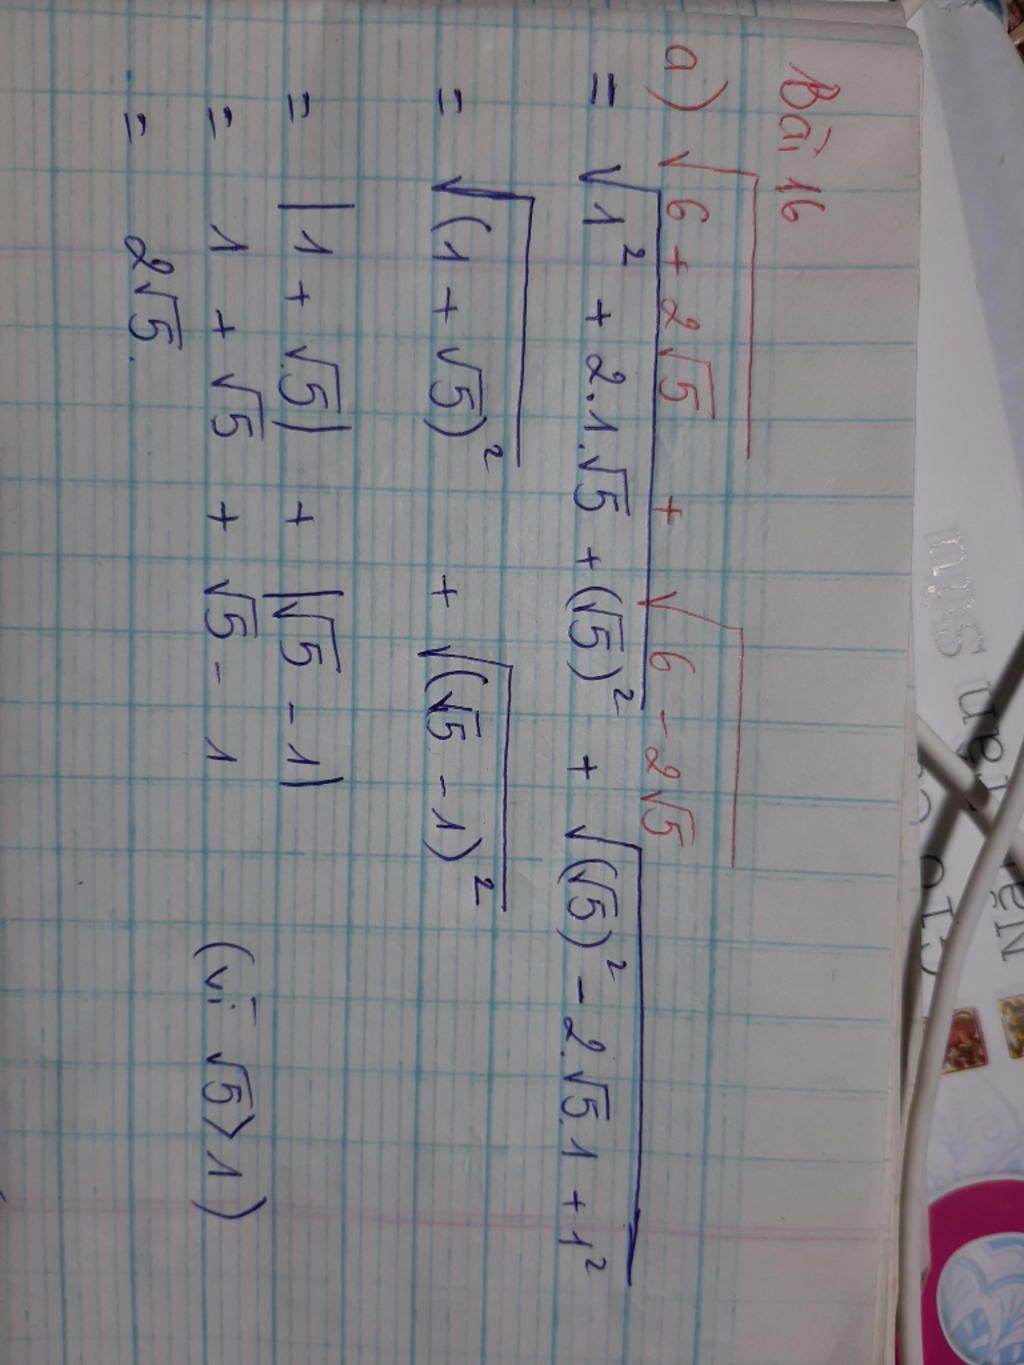 Bài 16
a) √(6 + 2√5) + √(6 - 2√5)
= √(1² + 2.1.√5 + (√5)²) + √((√5)² - 2.√5.1 + 1²)
= √((1 + √5)²) + √((√5 - 1)²)
= |1 + √5| + |√5 - 1|
= 1 + √5 + √5 - 1 (vì √5 > 1)
= 2√5.